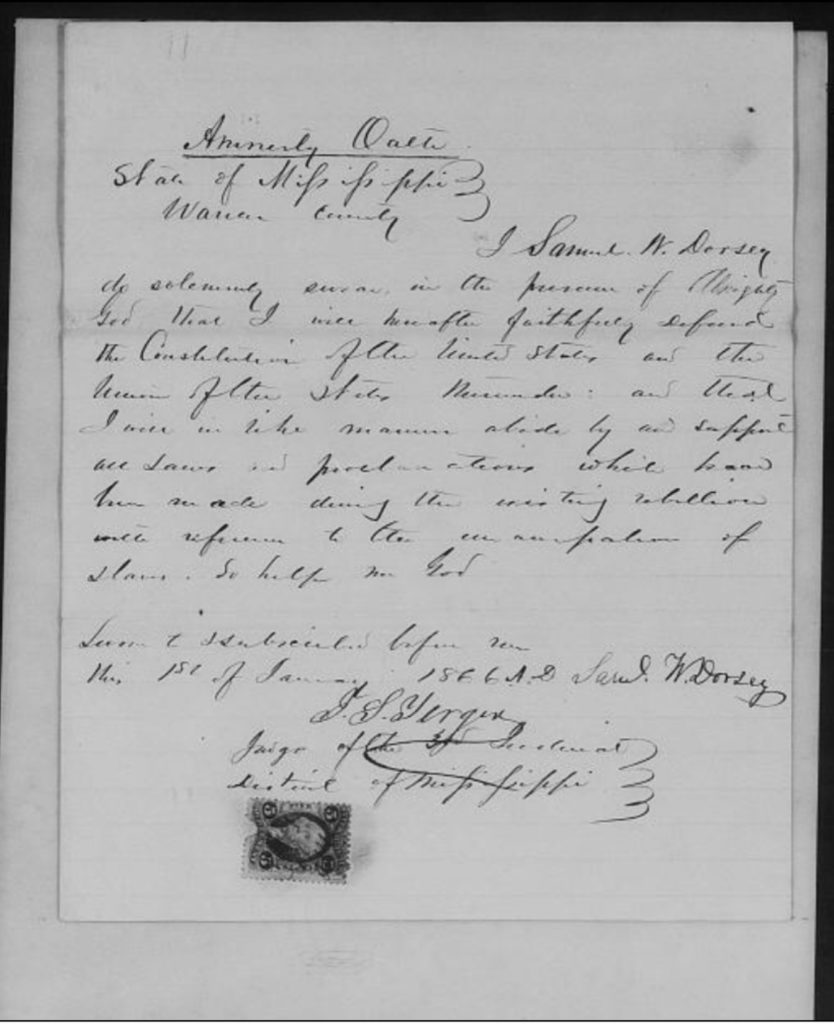 Amnesty Oath
State of Mississippi
Warren County
I Samuel. W. Dorsey
do solemnly swear, in the presence of Almighty
God that I will hereafter faithfully defend
the Constitution of the United States and the
Union of the States thereunder: and that
I will in like manner abide by and support
all Laws and proclamations which have
been made during the existing rebellion
with reference to the emancipation of
slaves. So help me God
Sworn to & subscribed before me
this 1st of January 1866 A.D Saml. W. Dorsey
J. S. Yerger
Judge of the 3d Judicial
District of Mississippi
5 5
5 5